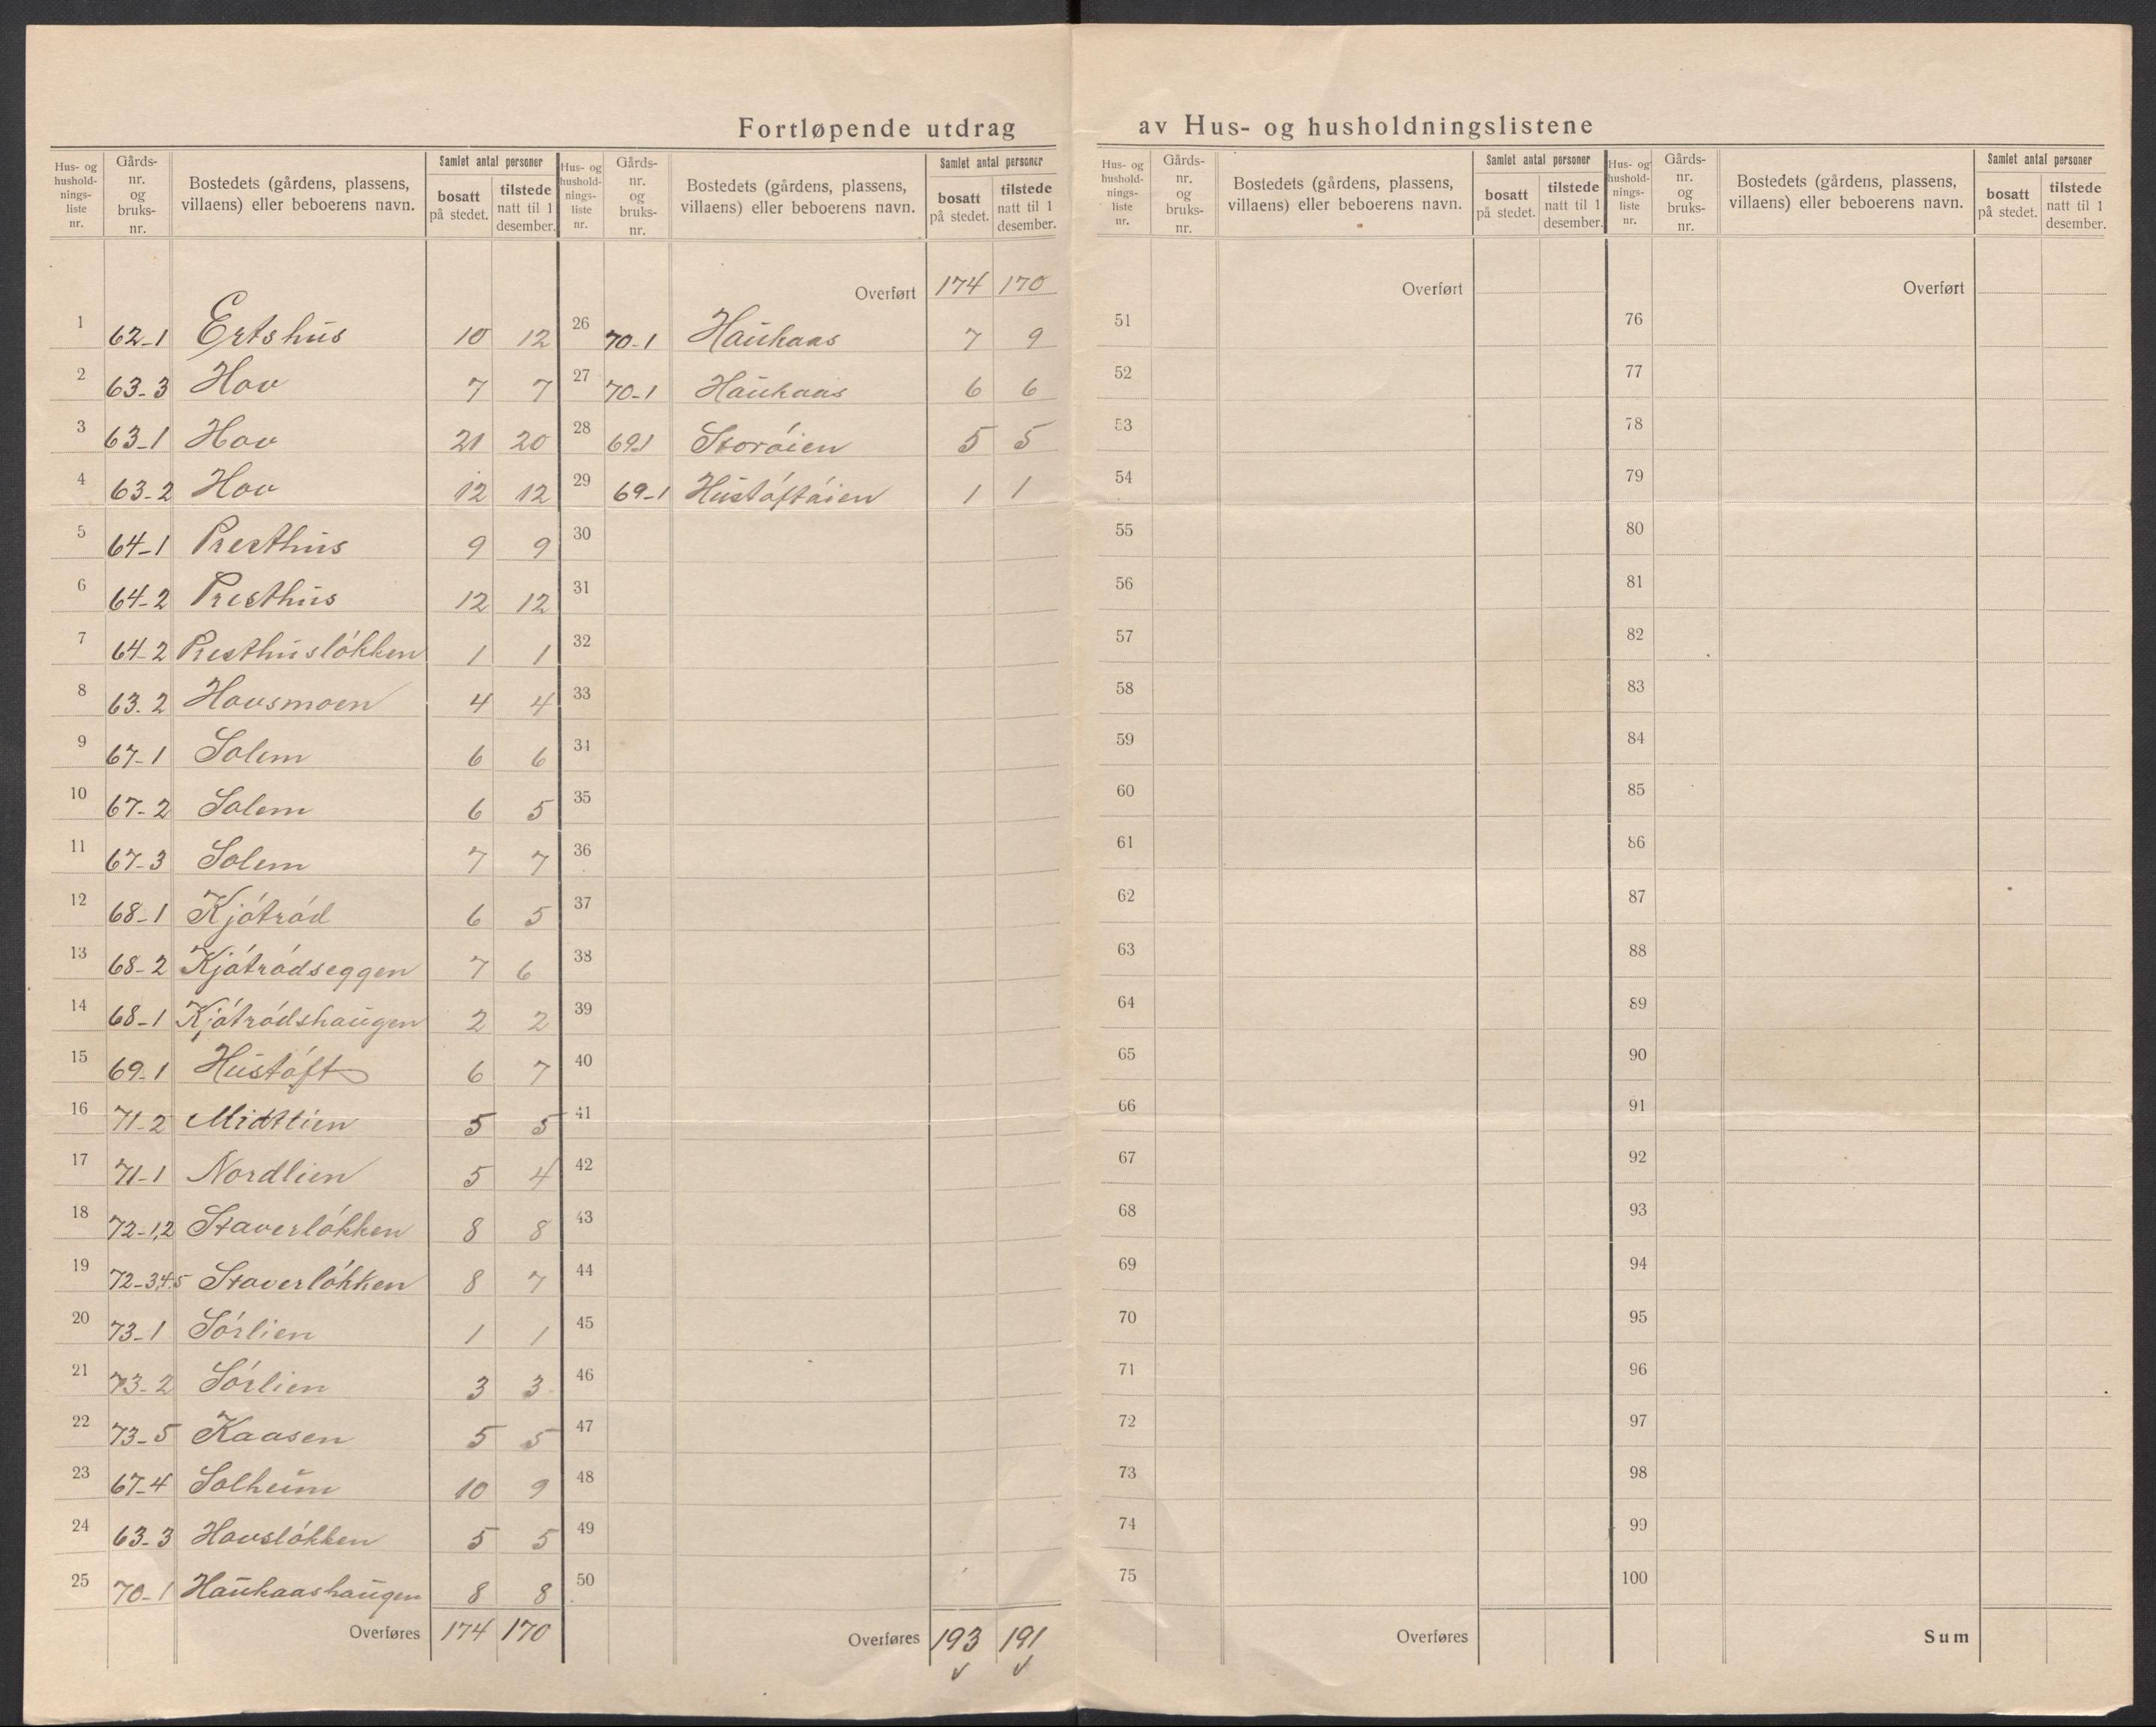 Fortløpende utdrag av Hus- og husholdningslistene
Hus- og husholdnings-liste nr. | Gårds-nr. og bruks-nr. | Bostedets (gårdens, plassens, villaens) eller beboerens navn. | Samlet antal personer | bosatt på stedet. | tilstede natt til 1 desember.
1 62-1 Ertshus 10 12
2 63-3 Hov 7 7
3 63-1 Hov 21 20
4 63-2 Hov 12 12
5 64-1 Presthus 9 9
6 64-2 Presthus 12 12
7 64-2 Presthusløkken 1 1
8 63.2 Hovsmoen 4 4
9 67-1 Solem 6 6
10 67-2 Solem 6 5
11 67-3 Solem 7 7
12 68-1 Kjøtrød 6 5
13 68-2 Kjøtrødseggen 7 6
14 68-1 Kjøtrødshaugen 2 2
15 69-1 Hustøft 6 7
16 71-2 Midtlien 5 5
17 71-1 Nordlien 5 4
18 72-1,2 Staverløkken 8 8
19 72-3,4.5 Staverløkken 8 7
20 73-1 Sørlien 1 1
21 73-2 Sørlien 3 3
22 73-5 Kaasen 5 5
23 67-4 Solheim 10 9
24 63-3 Hovsløkken 5 5
25 70-1 Haukaashaugen 8 8
Overføres 174 170
Hus- og husholdnings-liste nr. | Gårds-nr. og bruks-nr. | Bostedets (gårdens, plassens, villaens) eller beboerens navn. | Samlet antal personer | bosatt på stedet. | tilstede natt til 1 desember.
Overført 174 170
26 70-1 Haukaas 7 9
27 70-1 Haukaas 6 6
28 69-1 Storøien 5 5
29 69-1 Hustøftøien 1 1
30
31
32
33
34
35
36
37
38
39
40
41
42
43
44
45
46
47
48
49
50
Overføres 193 191
Hus- og hushold-nings-liste nr. | Gårds-nr. og bruks-nr. | Bostedets (gårdens, plassens, villaens) eller beboerens navn. | Samlet antal personer | bosatt på stedet. | tilstede natt til 1 desember.
Overført
51
52
53
54
55
56
57
58
59
60
61
62
63
64
65
66
67
68
69
70
71
72
73
74
75
Overføres
Hus- og hushold-nings-liste nr. | Gårds-nr. og bruks-nr. | Bostedets (gårdens, plassens, villaens) eller beboerens navn. | Samlet antal personer | bosatt på stedet. | tilstede natt til 1 desember.
Overført
76
77
78
79
80
81
82
83
84
85
86
87
88
89
90
91
92
93
94
95
96
97
98
99
100
Sum